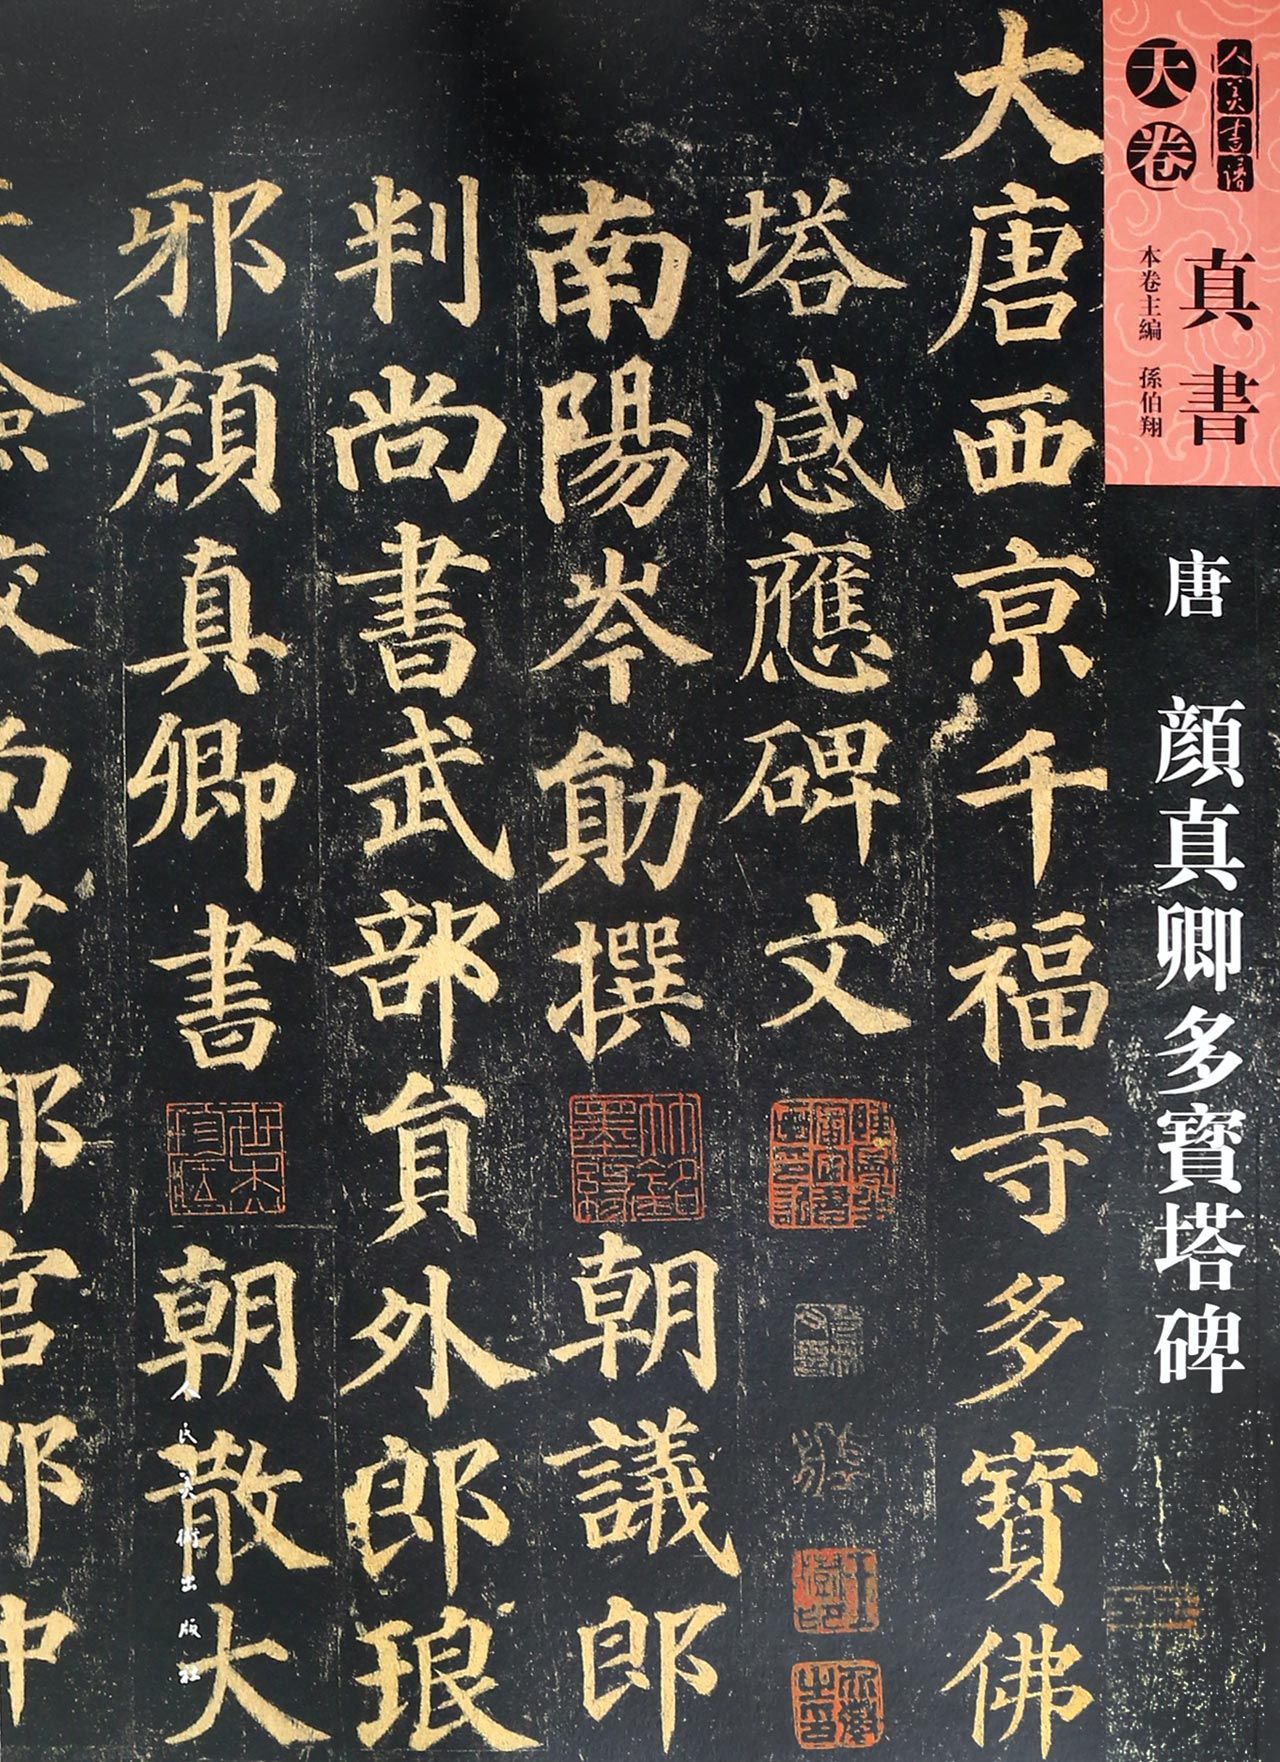 人美書譜
天卷
真書
本卷主編 孫伯翔
唐 顏真卿多寶塔碑
大唐西京千福寺多寶佛
塔感應碑文
南陽岑勛撰 朝議郎
判尚書武部員外郎琅
邪顏真卿書 朝散大
人民美術出版社